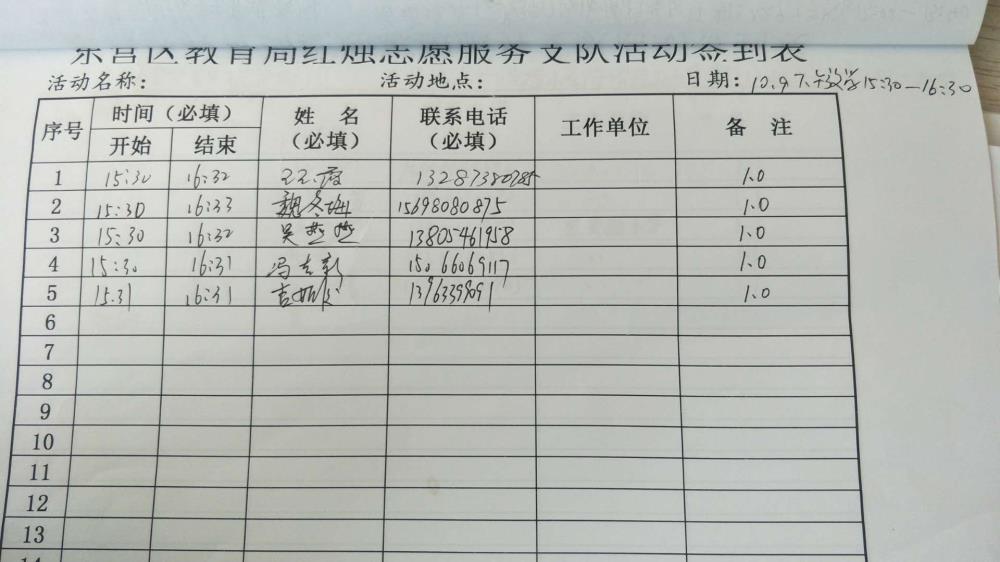 东营区教育局红烛志愿服务支队活动签到表
活动名称： 活动地点： 日期：10.9 7. 15:30—16:30
序号 时间（必填） 姓 名（必填） 联系电话（必填） 工作单位 备 注
开始 结束
1 15:30 16:32 1.0
2 15:30 16:33 魏冬梅 15698080875 1.0
3 15:30 16:32 吴燕燕 13805461958 1.0
4 15:30 16:31 15066069117 1.0
5 15.31 16:31 1.0
6
7
8
9
10
11
12
13